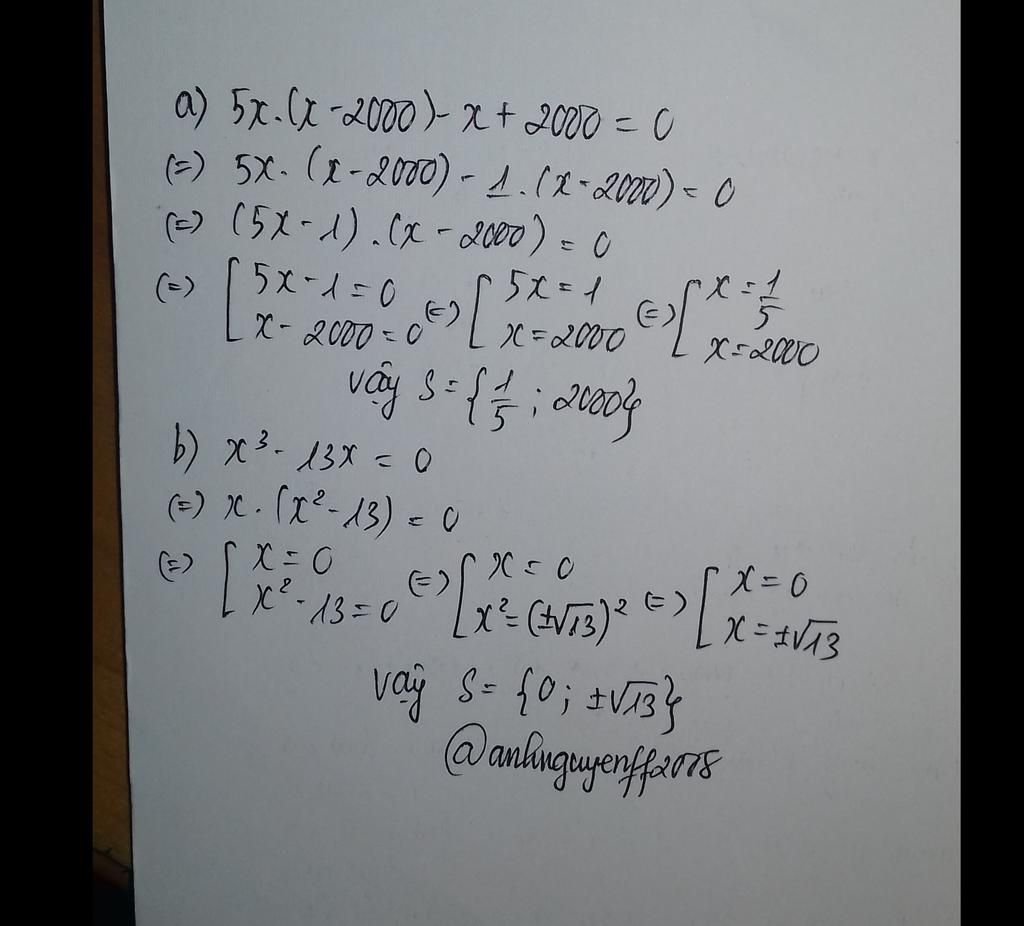 a) 5x.(x-2000)-x+2000=0
(=) 5x.(x-2000)-1.(x-2000)=0
(=) (5x-1).(x-2000)=0
(=) [5x-1=0 (=) [5x=1 (=) [x=1/5
x-2000=0 x=2000 x=2000
vậy S={1/5; 2000}
b) x³-13x=0
(=) x.(x²-13)=0
(=) [x=0 (=) [x=0 (=) [x=0
x²-13=0 x²=(±√13)² x=±√13
vậy S={0; ±√13}
@anhnguyenff2078